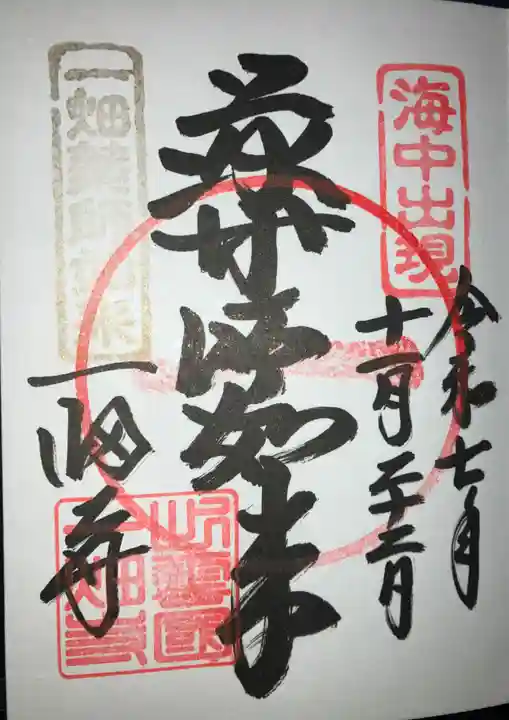 海中出現
令和七年
十一月二十三日
薬師如来
一畑薬師如来
一畑寺
出雲國
一畑寺